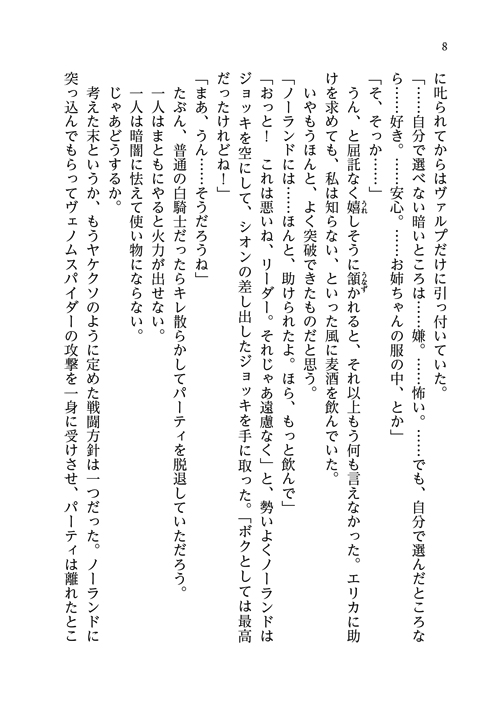 8
に叱られてからはヴァルプだけに引っ付いていた。
「……自分で選べない暗いところは……嫌。……怖い。……でも、自分で選んだところな
ら……好き。……安心。……お姉ちゃんの服の中、とか」
「そ、そっか……」
うん、と屈託なく嬉しそうに頷かれると、それ以上もう何も言えなかった。エリカに助
うれ
うなず
けを求めても、私は知らない、といった風に麦酒を飲んでいた。
いやもうほんと、よく突破できたものだと思う。
「ノーランドには……ほんと、助けられたよ。ほら、もっと飲んで」
「おっと！　これは悪いね、リーダー。それじゃあ遠慮なく」と、勢いよくノーランドは
ジョッキを空にして、シオンの差し出したジョッキを手に取った。「ボクとしては最高
だったけれどね！」
「まあ、うん……そうだろうね」
たぶん、普通の白騎士だったらキレ散らかしてパーティを脱退していただろう。
一人はまともにやると火力が出せない。
一人は暗闇に怯えて使い物にならない。
じゃあどうするか。
考えた末というか、もうヤケクソのように定めた戦闘方針は一つだった。ノーランドに
突っ込んでもらってヴェノムスパイダーの攻撃を一身に受けさせ、パーティは離れたとこ